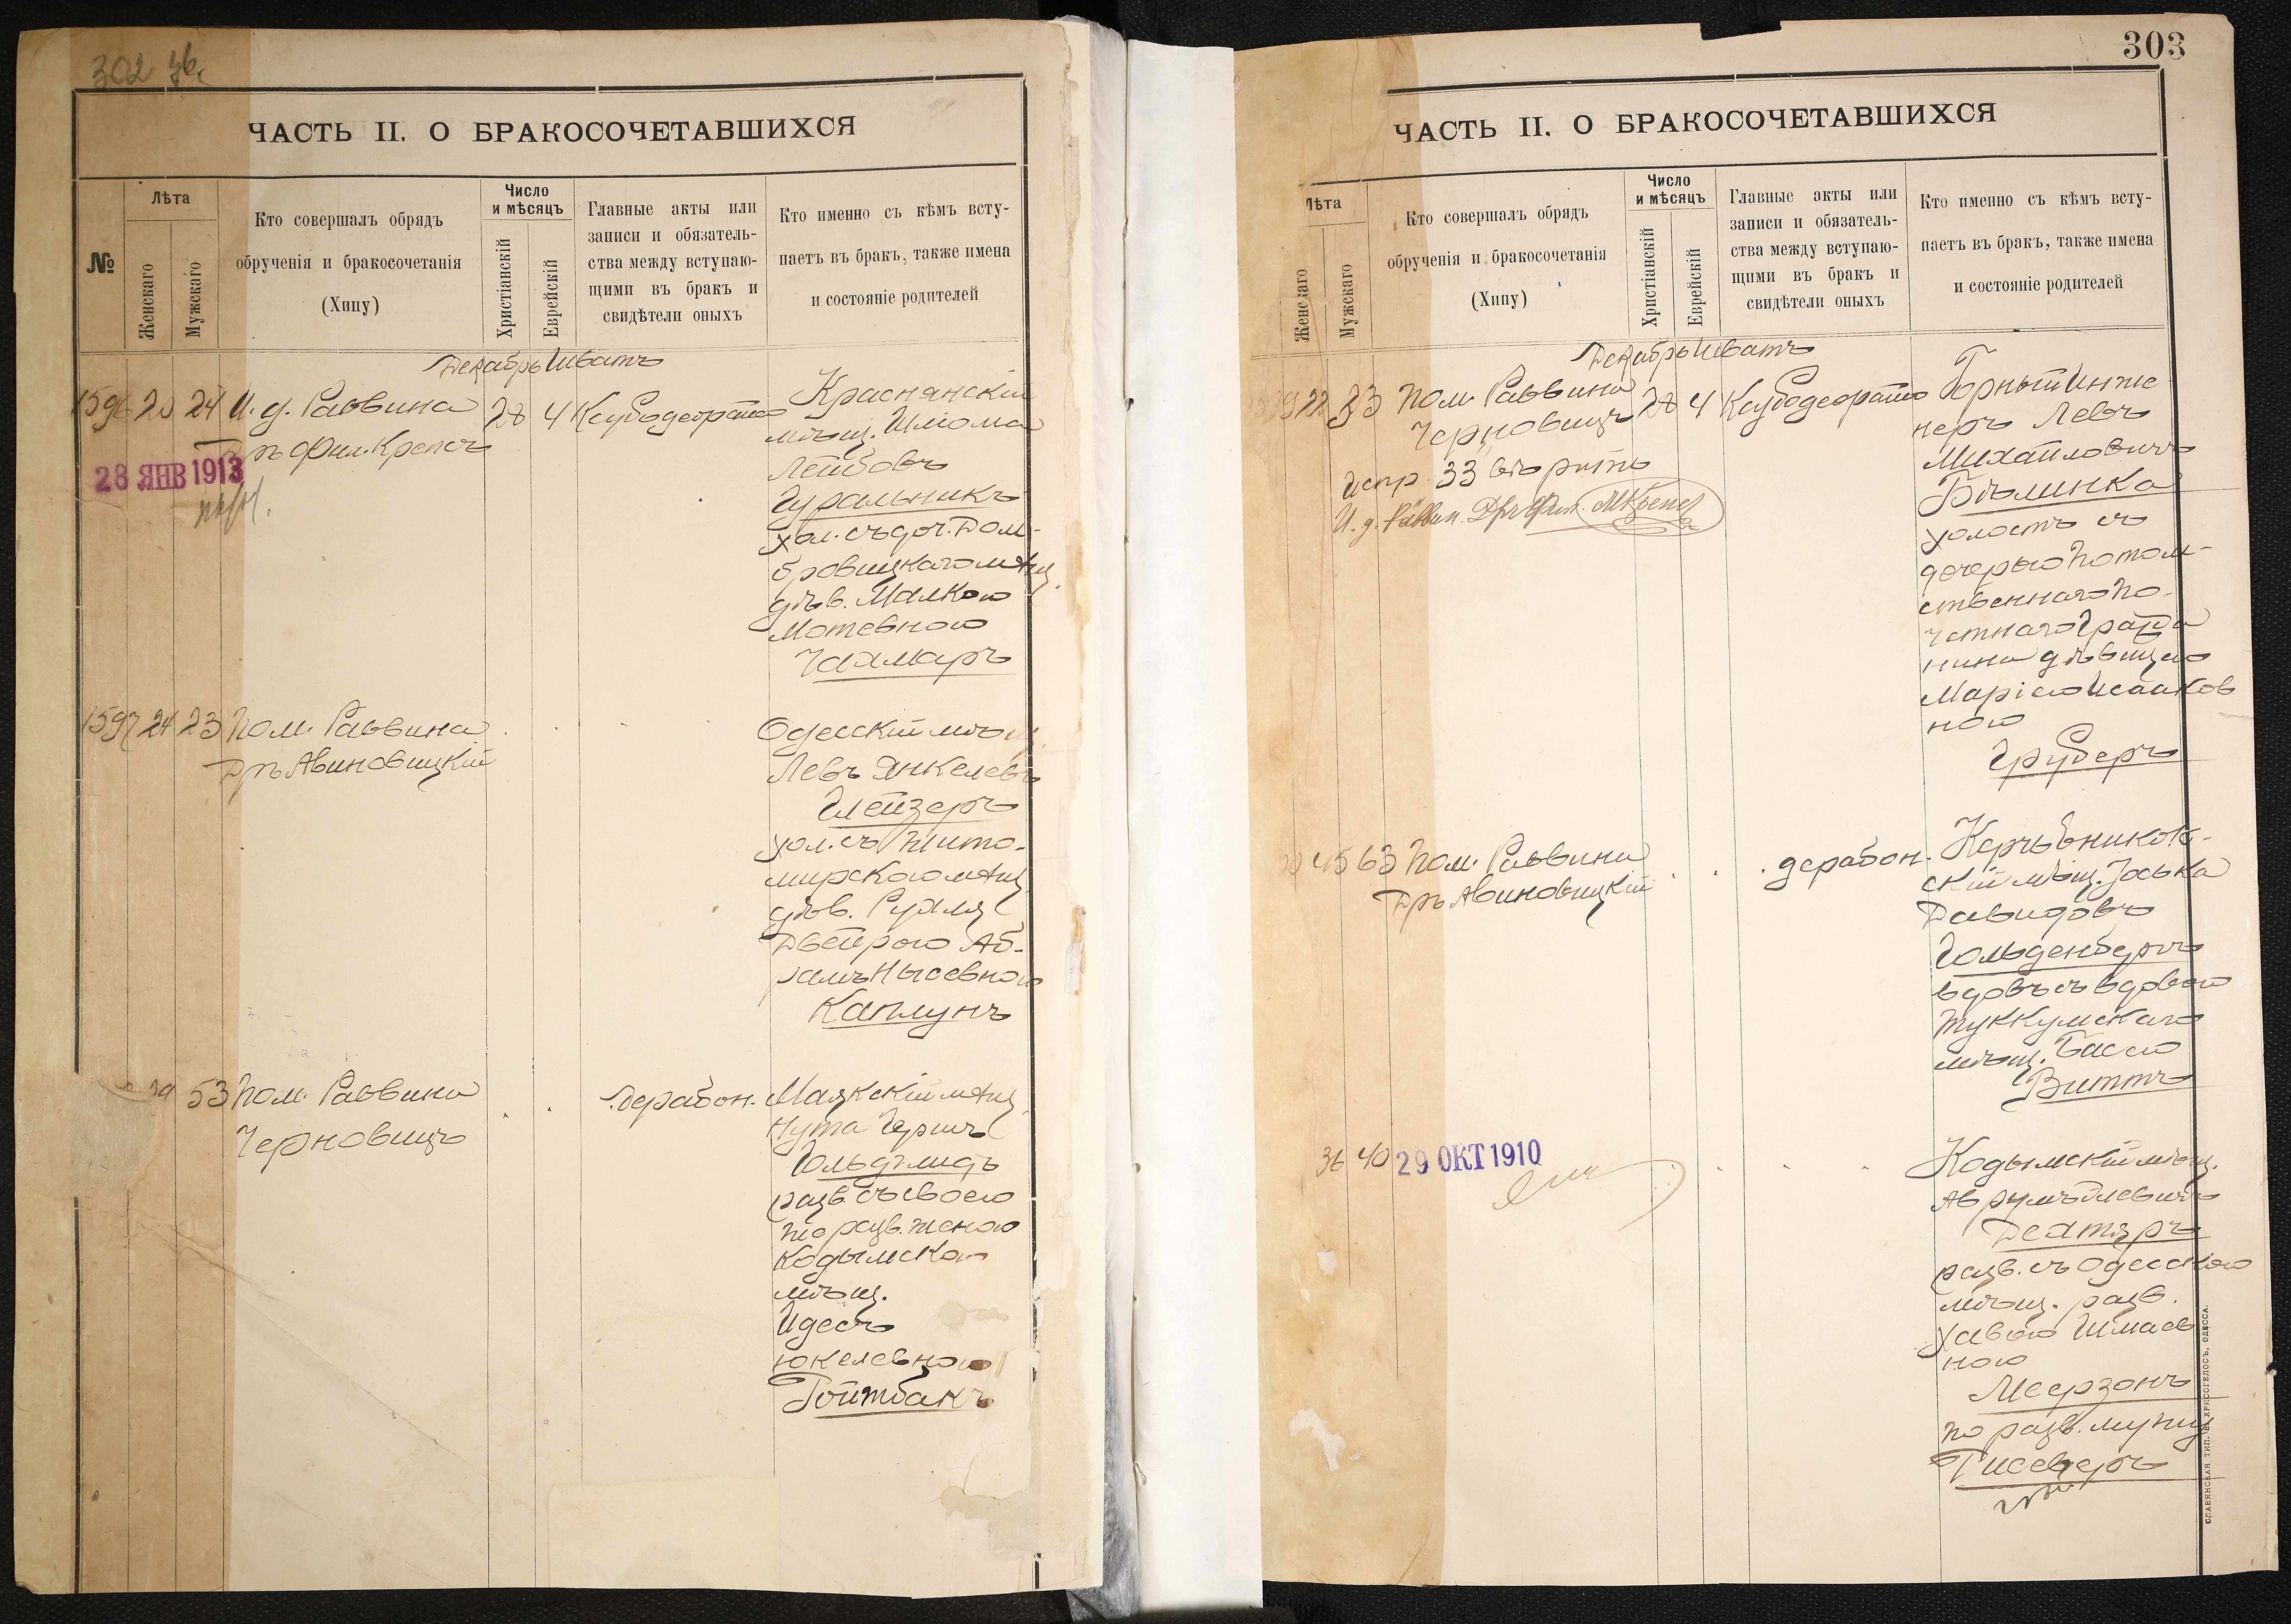 302
ЧАСТЬ II. О БРАКОСОЧЕТАВШИХСЯ
№
Лѣта
Женскаго
Мужскаго
Кто совершалъ обрядъ
обрученія и бракосочетанія
(Хипу)
Число
и мѣсяцъ
Христіанскій
Еврейскій
Главные акты или
записи и обязатель-
ства между вступаю-
щими въ бракъ и
свидѣтели оныхъ
Кто именно съ кѣмъ всту-
паетъ въ бракъ, также имена
и состояніе родителей
Декабрь Шватъ
1596 20 24 И. д. Раввина 28 4
Дръ Фил. Крепсъ
28 ЯНВ 1913
Краснянскій
мѣщ. Шлома
Лейбовъ
Гуральникъ
хол. съ доч. Дом-
бровицкаго мѣщ.
дѣв. Малкою
Мотевною
Чахмаръ
1597 24 23 Пом. Раввина
Дръ Авиновицкій
Одесскій мѣщ.
Левъ Янкелевъ
Глейзеръ
хол. съ Жито-
мирскою мѣщ.
дѣв. Рухля
Двейрою Аб-
рамъ Нысевною
Каплунъ
53 Пом. Раввина
Черновицъ
дерабон.
Маякскій мѣщ.
Нута Гершъ
Гольдшмидъ
разв. съ своею
же разв. женою
Кодымскою
мѣщ.
Идесъ
Юкелевною
Гойтбакъ
303
ЧАСТЬ II. О БРАКОСОЧЕТАВШИХСЯ
Лѣта
Женскаго
Мужскаго
Кто совершалъ обрядъ
обрученія и бракосочетанія
(Хипу)
Число
и мѣсяцъ
Христіанскій
Еврейскій
Главные акты или
записи и обязатель-
ства между вступаю-
щими въ бракъ и
свидѣтели оныхъ
Кто именно съ кѣмъ всту-
паетъ въ бракъ, также имена
и состояніе родителей
Декабрь Шватъ
22 33 Пом. Раввина 28 4
Черновицъ
Испр. 33 вѣрить
И. д. Раввин. Дръ Фил. МКрепсъ
Горный Инже
неръ Левъ
Михайловичъ
Бѣлинка
холостъ съ
дочерью Потом-
ственнаго По-
четнаго Гражда
нина дѣвицею
Маріею Исааков
ною
Груберъ
45 63 Пом. Раввина
Дръ Авиновицкій
дерабон.
Керчъ Еникол-
скій мѣщ. Іоська
Давидовъ
Гольденбергъ
вдовъ съ вдовою
Туккумскаго
мѣщ. Басею
Виттъ
36 40
29 ОКТ 1910
Кодымскій мѣщ.
Аврумъ Элевичъ
Дехтяръ
разв. съ Одесскою
мѣщ. разв.
Хавою Шмаев
ною
Меерзонъ
по разв. мужу
СЛАВЯНСКАЯ ТИП. Е. ХРИСОГЕЛОСЪ, ОДЕССА.